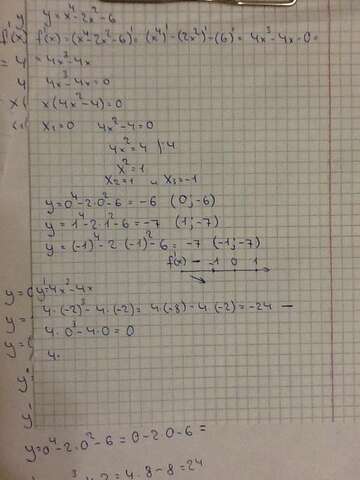 y = x⁴ - 2x² - 6
f'(x) f'(x) = (x⁴ - 2x² - 6)' = (x⁴)' - (2x²)' - (6)' = 4x³ - 4x - 0 =
= 4x³ - 4x
4x³ - 4x = 0
x(4x² - 4) = 0
x₁ = 0 4x² - 4 = 0
4x² = 4 | :4
x² = 1
x₂ = 1 и x₃ = -1
y = 0⁴ - 2·0² - 6 = -6 (0; -6)
y = 1⁴ - 2·1² - 6 = -7 (1; -7)
y = (-1)⁴ - 2·(-1)² - 6 = -7 (-1; -7)
f'(x) - -1 0 1
y' = 4x³ - 4x
4·(-2)³ - 4·(-2) = 4·(-8) - 4·(-2) = -24 -
4·0³ - 4·0 = 0
4·
y = 0⁴ - 2·0² - 6 = 0 - 2·0 - 6 =
2 = 4·8 - 8 = 24